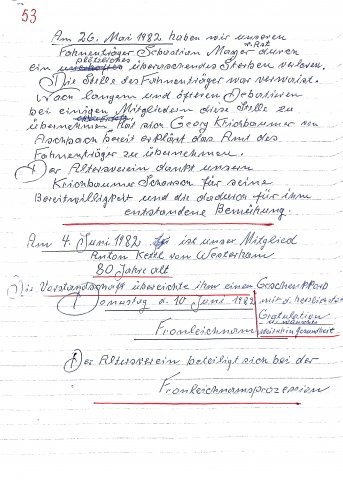 53
Am 26. Mai 1982 haben wir unseren
Fahnenträger Sebastian Mager durch
ein plötzliches überraschendes Sterben verloren.
Die Stelle des Fahnenträger war verwaist.
Nach langem und öfteren Debatieren
bei einigen Mitgliedern diese Stelle zu
übernehmen, hat sich Georg Kirchbaumer von
Aschbach bereit erklärt das Amt des
Fahnenträger zu übernehmen.
Der Altersverein dankt unserm
Kirchbaumer Schorsch für seine
Bereitwilligkeit und die dadurch für ihm
entstandene Bemühung.
Am 4. Juni 1982 ist unser Mitglied
Anton Kettl von Westerham
80 Jahre alt
Die Vorstandschaft überreichte ihm einen Geschenkkorb
mit d. herzlichsten
Gratulation
Donnerstag d. 10 Juni 1982
Fronleichnam
Der Altersverein beteiligt sich bei der
Fronleichnamsprozession